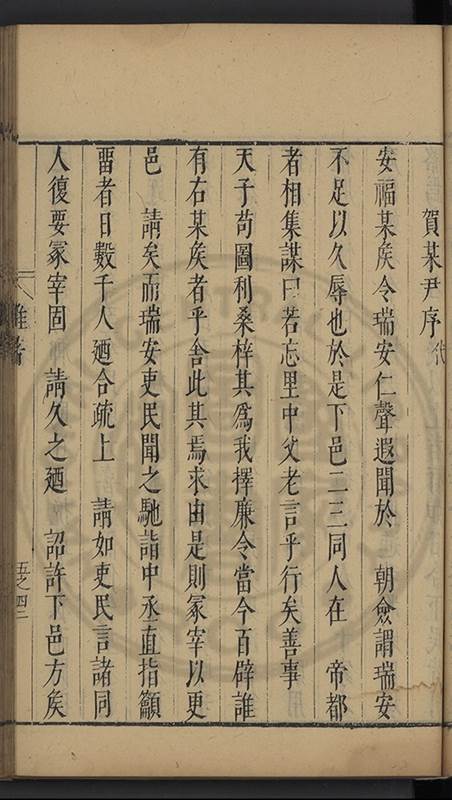 賀某尹序代
安福某矦令瑞安仁聲遐聞於　朝僉謂瑞安
不足以久辱也於是下邑二三同人在　帝都
者相集謀曰若忘里中父老言乎行矣善事
天子苟圖利桑梓其爲我擇廉令當今百辟誰
有右某矦者乎舎此其焉求由是則冢宰以更
邑　請矣而瑞安吏民聞之馳詣中丞直指籲
畱者日數千人廼合疏上　請如吏民言諸同
人復要冢宰固　請久之廼　詔許下邑方矦
雜著
五之四二